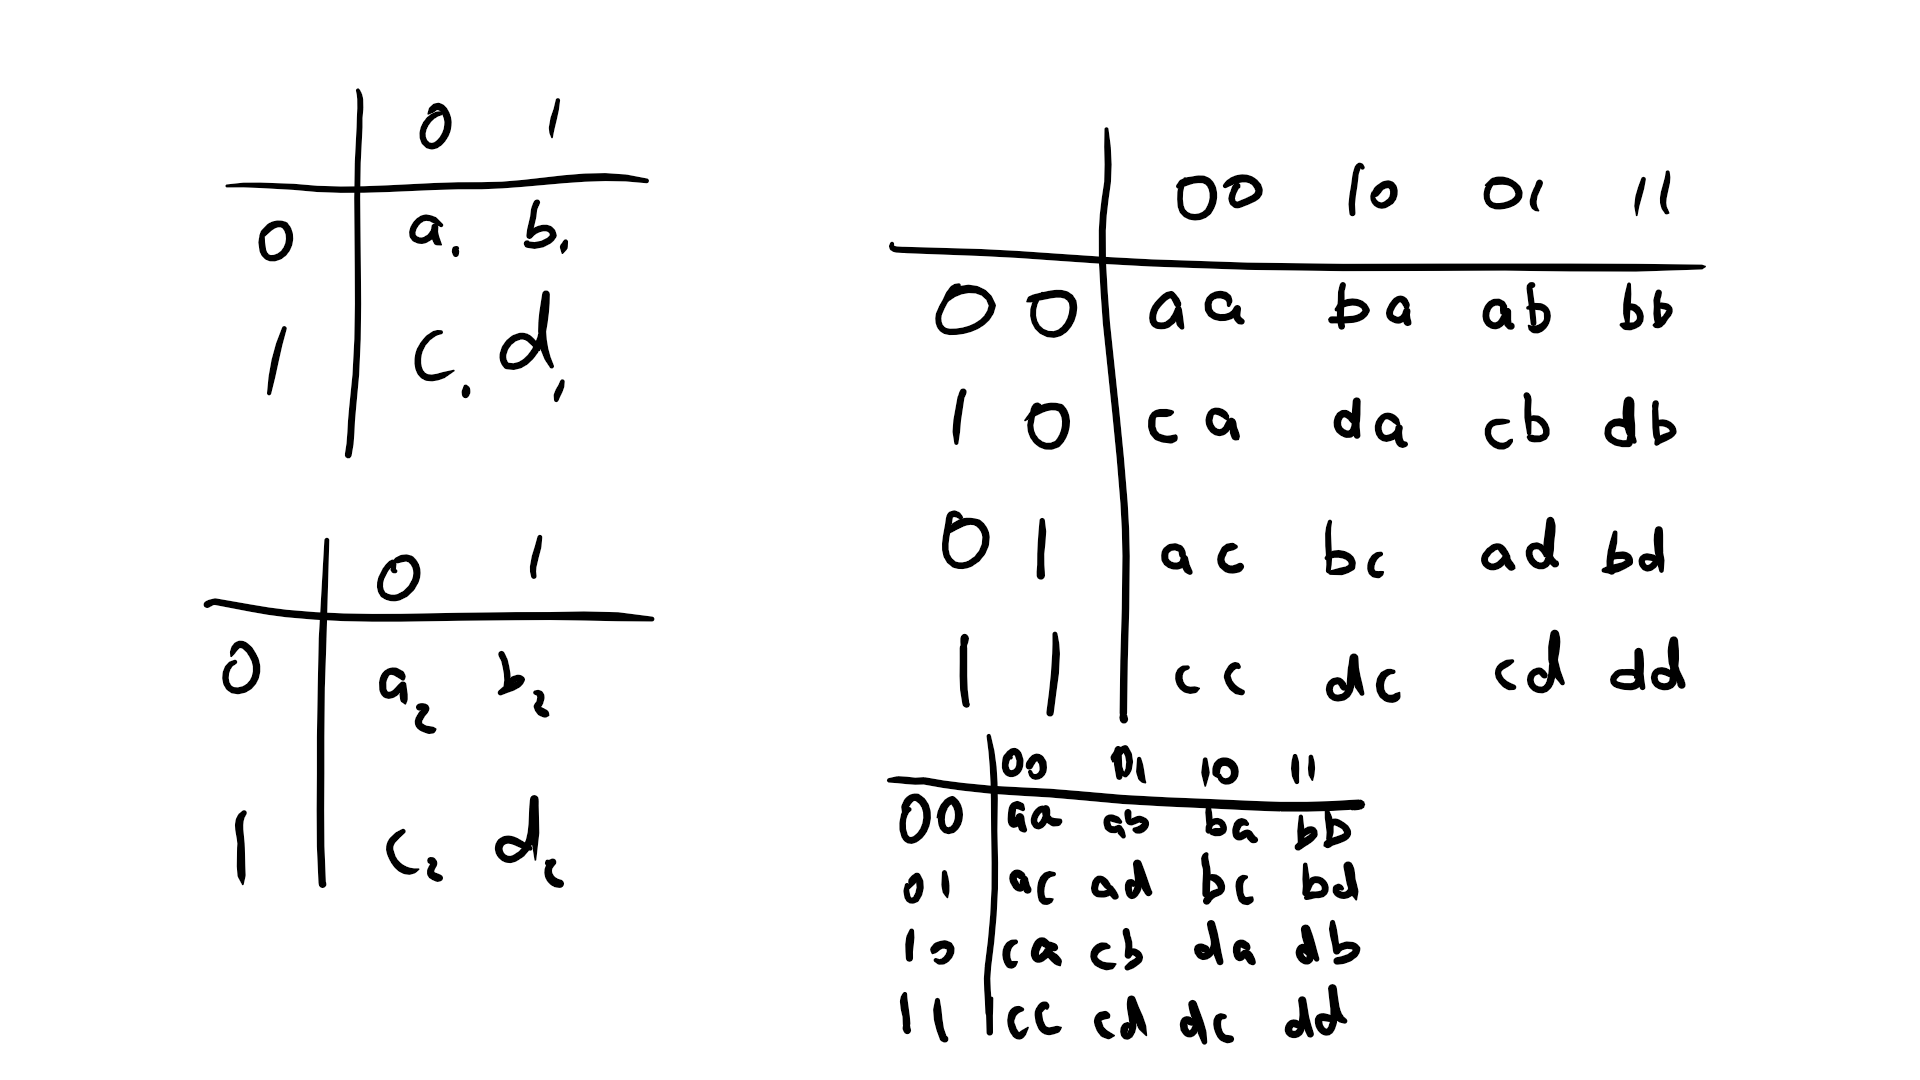 0 1
0 a₁ b₁
1 c₁ d₁
0 1
0 a₂ b₂
1 c₂ d₂
00 10 01 11
00 aa ba ab bb
10 ca da cb db
01 ac bc ad bd
11 cc dc cd dd
00 01 10 11
00 aa ab ba bb
01 ac ad bc bd
10 ca cb da db
11 cc cd dc dd